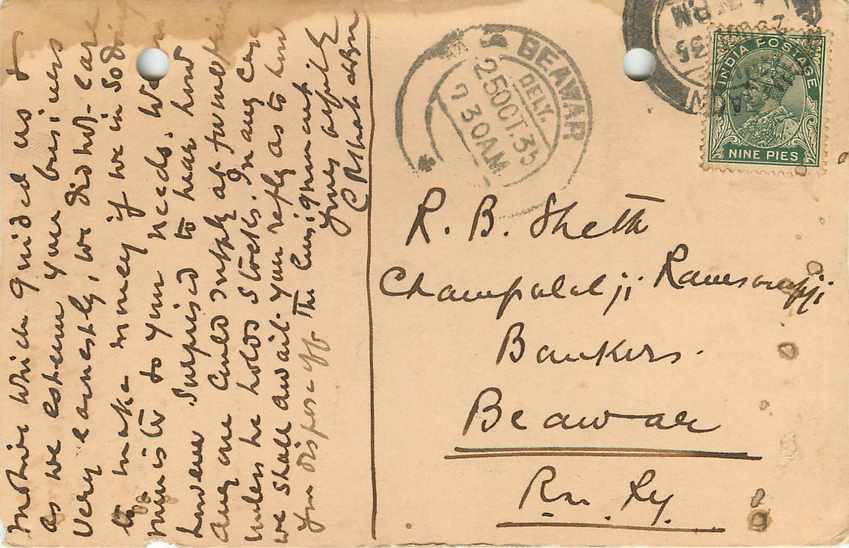 motive which guided us &
as we esteem your business
very earnestly, we did not care
to make money if we in so doing
minister to your needs. We
however surprised to hear how
any one could supply at
unless he holds stocks. In any case
we shall await your reply as to how
you dispose off the consignment
yours
BEAWAR
DELY.
25 OCT. 35
7 30 AM
INDIA POSTAGE
NINE PIES
R. B. Sheth
Champalalji Ramsarupji
Bankers.
Beawar
Rn. Ry.